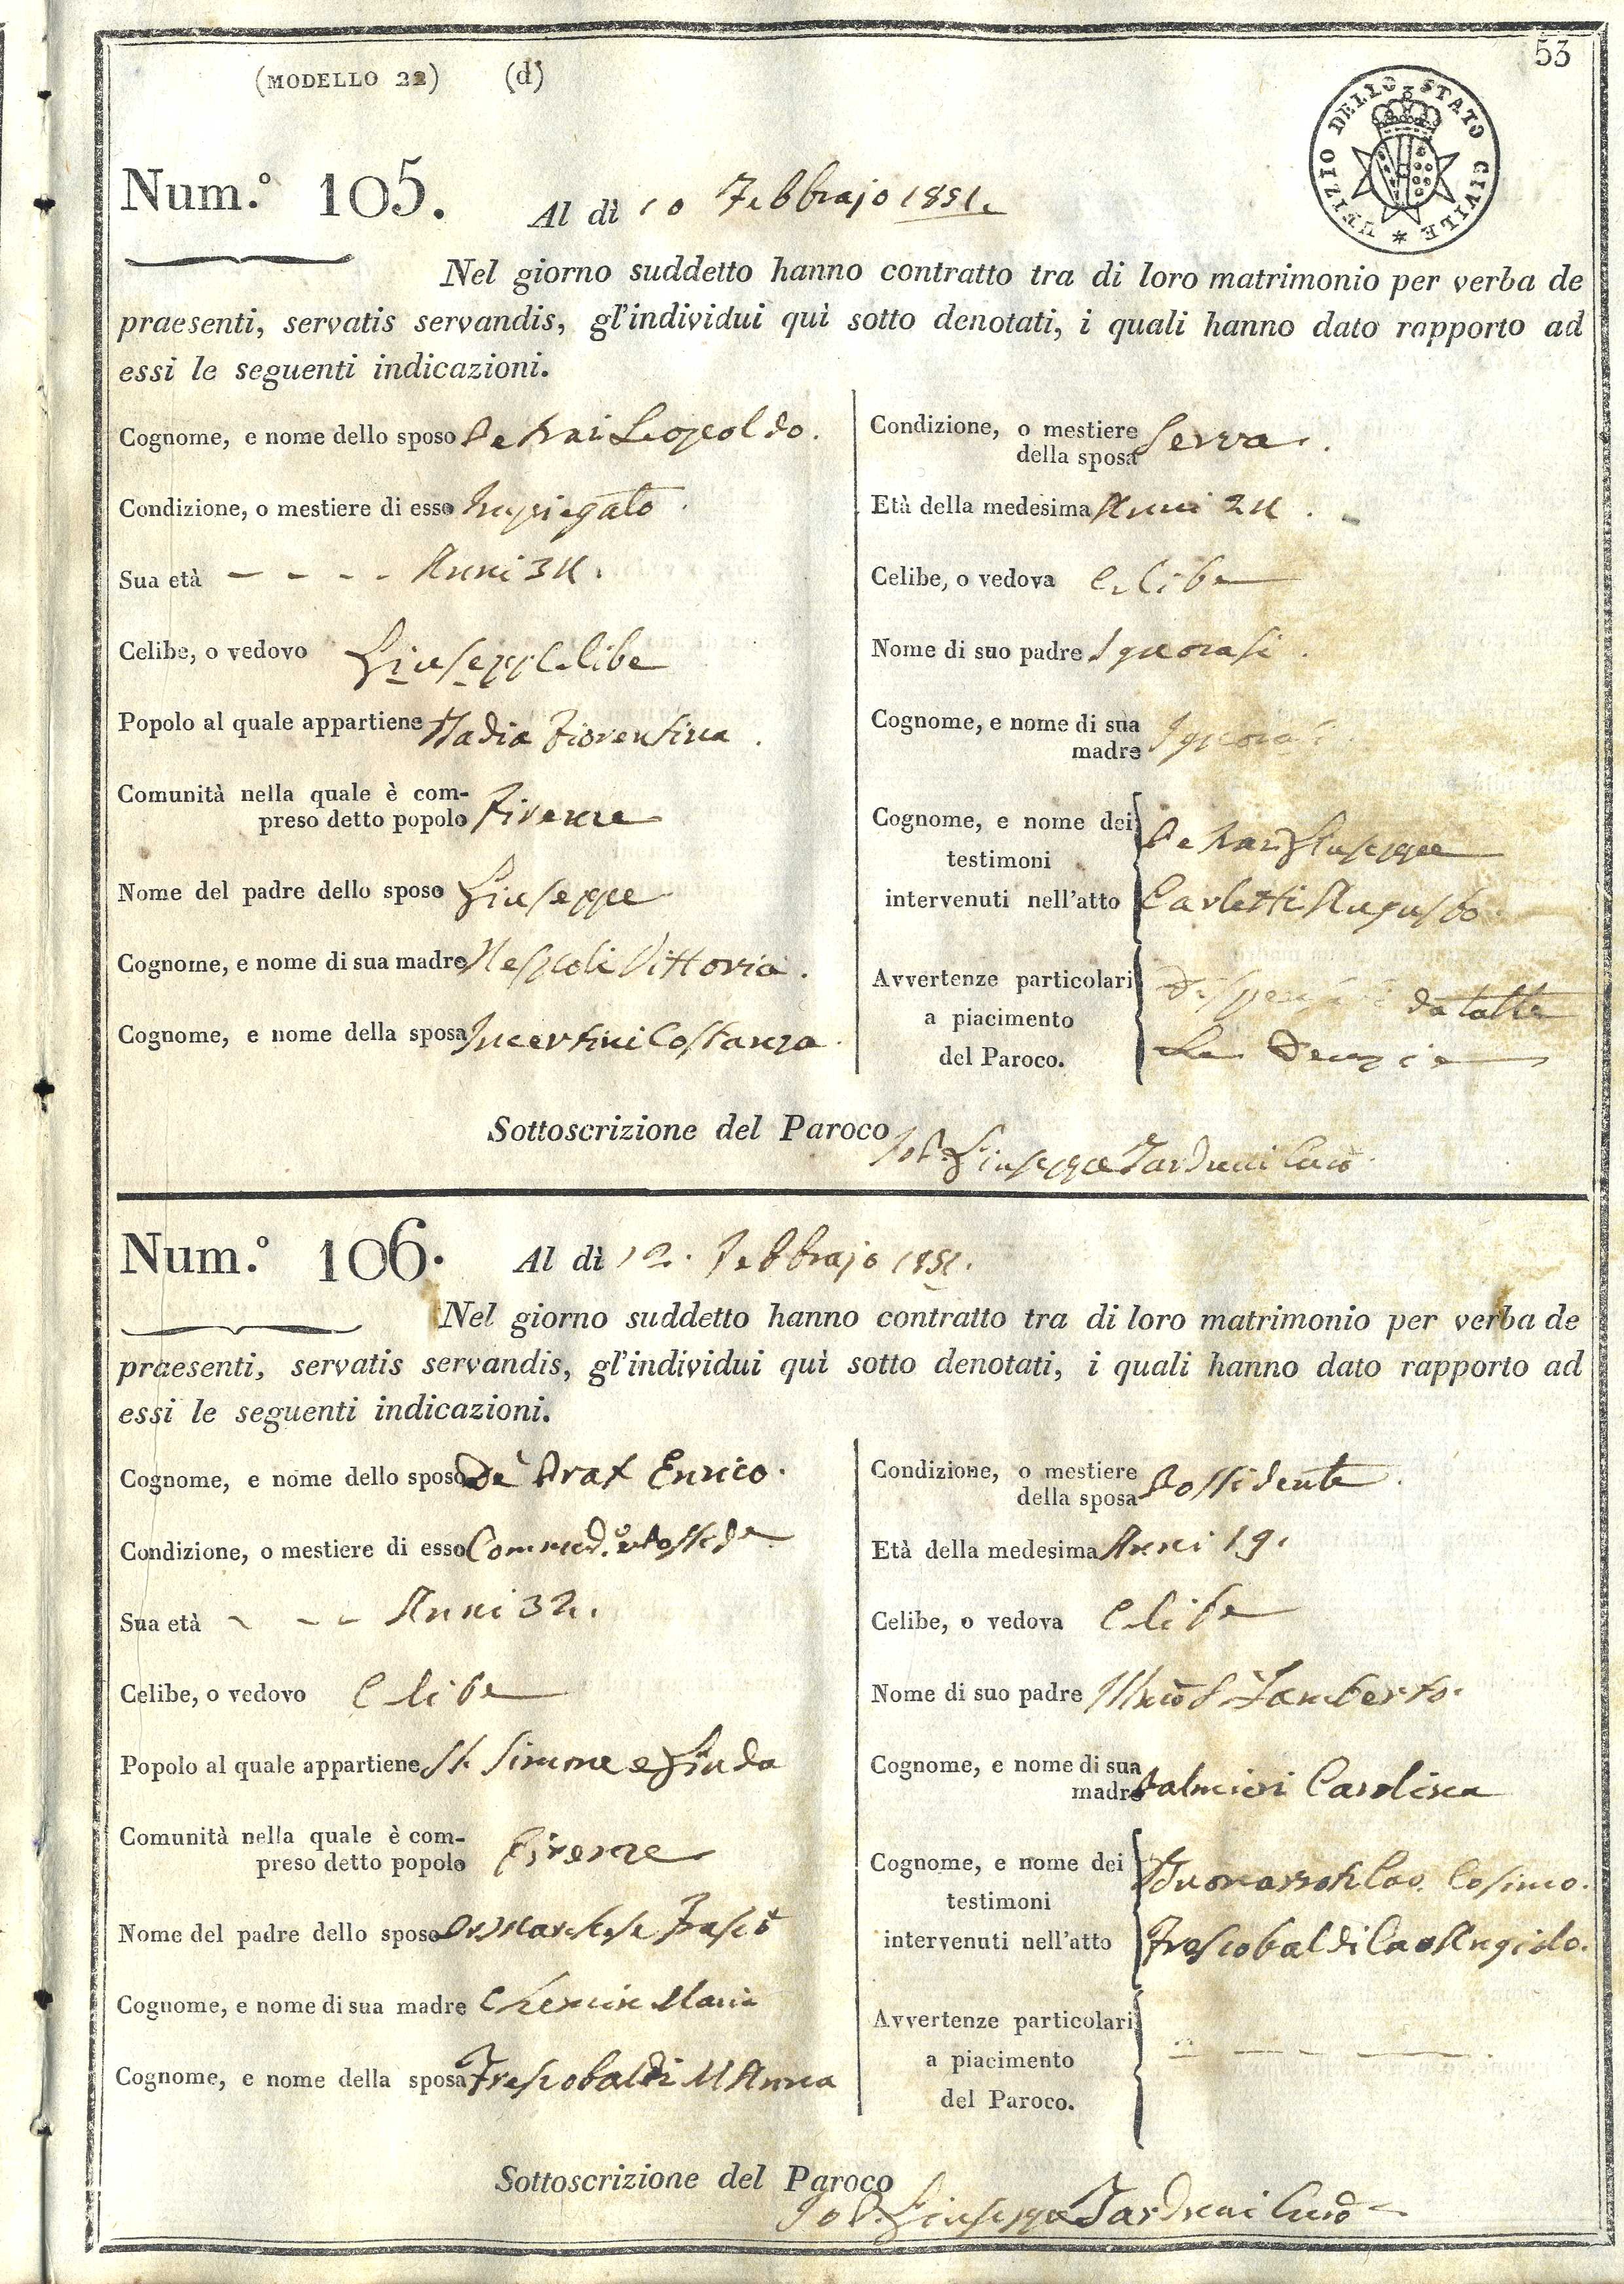 53
(MODELLO 22) (d)
UFIZIO DELLO STATO CIVILE *
Num.° 105. Al dì 10 Febbrajo 1851.
Nel giorno suddetto hanno contratto tra di loro matrimonio per verba de
praesenti, servatis servandis, gl'individui quì sotto denotati, i quali hanno dato rapporto ad
essi le seguenti indicazioni.
Cognome, e nome dello sposo Leopoldo.
Condizione, o mestiere di esso Impiegato.
Sua età - - - - Anni
Celibe, o vedovo Celibe
Popolo al quale appartiene Badia Fiorentina.
Comunità nella quale è com-
preso detto popolo Firenze
Nome del padre dello sposo Giuseppe
Cognome, e nome di sua madre Nespoli Vittoria.
Cognome, e nome della sposa Costanza.
Condizione, o mestiere
della sposa Serva.
Età della medesima Anni
Celibe, o vedova Celibe
Nome di suo padre Ignorasi.
Cognome, e nome di sua
madre
Cognome, e nome dei
testimoni Giuseppe
intervenuti nell'atto Carletti Augusto.
Avvertenze particolari
a piacimento da tutte
del Paroco. Le Denzie
Sottoscrizione del Paroco
Giuseppe Tarduni
Num.° 106. Al dì 12. Febbrajo 1851.
Nel giorno suddetto hanno contratto tra di loro matrimonio per verba de
praesenti, servatis servandis, gl'individui quì sotto denotati, i quali hanno dato rapporto ad
essi le seguenti indicazioni.
Cognome, e nome dello sposo De Prat Enrico.
Condizione, o mestiere di esso
Sua età - - - Anni 32.
Celibe, o vedovo Celibe
Popolo al quale appartiene SS. Simone e Giuda
Comunità nella quale è com-
preso detto popolo Firenze
Nome del padre dello sposo Marchese
Cognome, e nome di sua madre Maria
Cognome, e nome della sposa Frescobaldi M Anna
Condizione, o mestiere
della sposa Possidente.
Età della medesima Anni 19.
Celibe, o vedova Celibe
Nome di suo padre Lamberto.
Cognome, e nome di sua
madre Palmieri Carolina
Cognome, e nome dei Buonarroti Cav. Cosimo.
testimoni
intervenuti nell'atto Frescobaldi Cav Angiolo.
Avvertenze particolari
a piacimento
del Paroco.
Sottoscrizione del Paroco
Giuseppe Tarduni